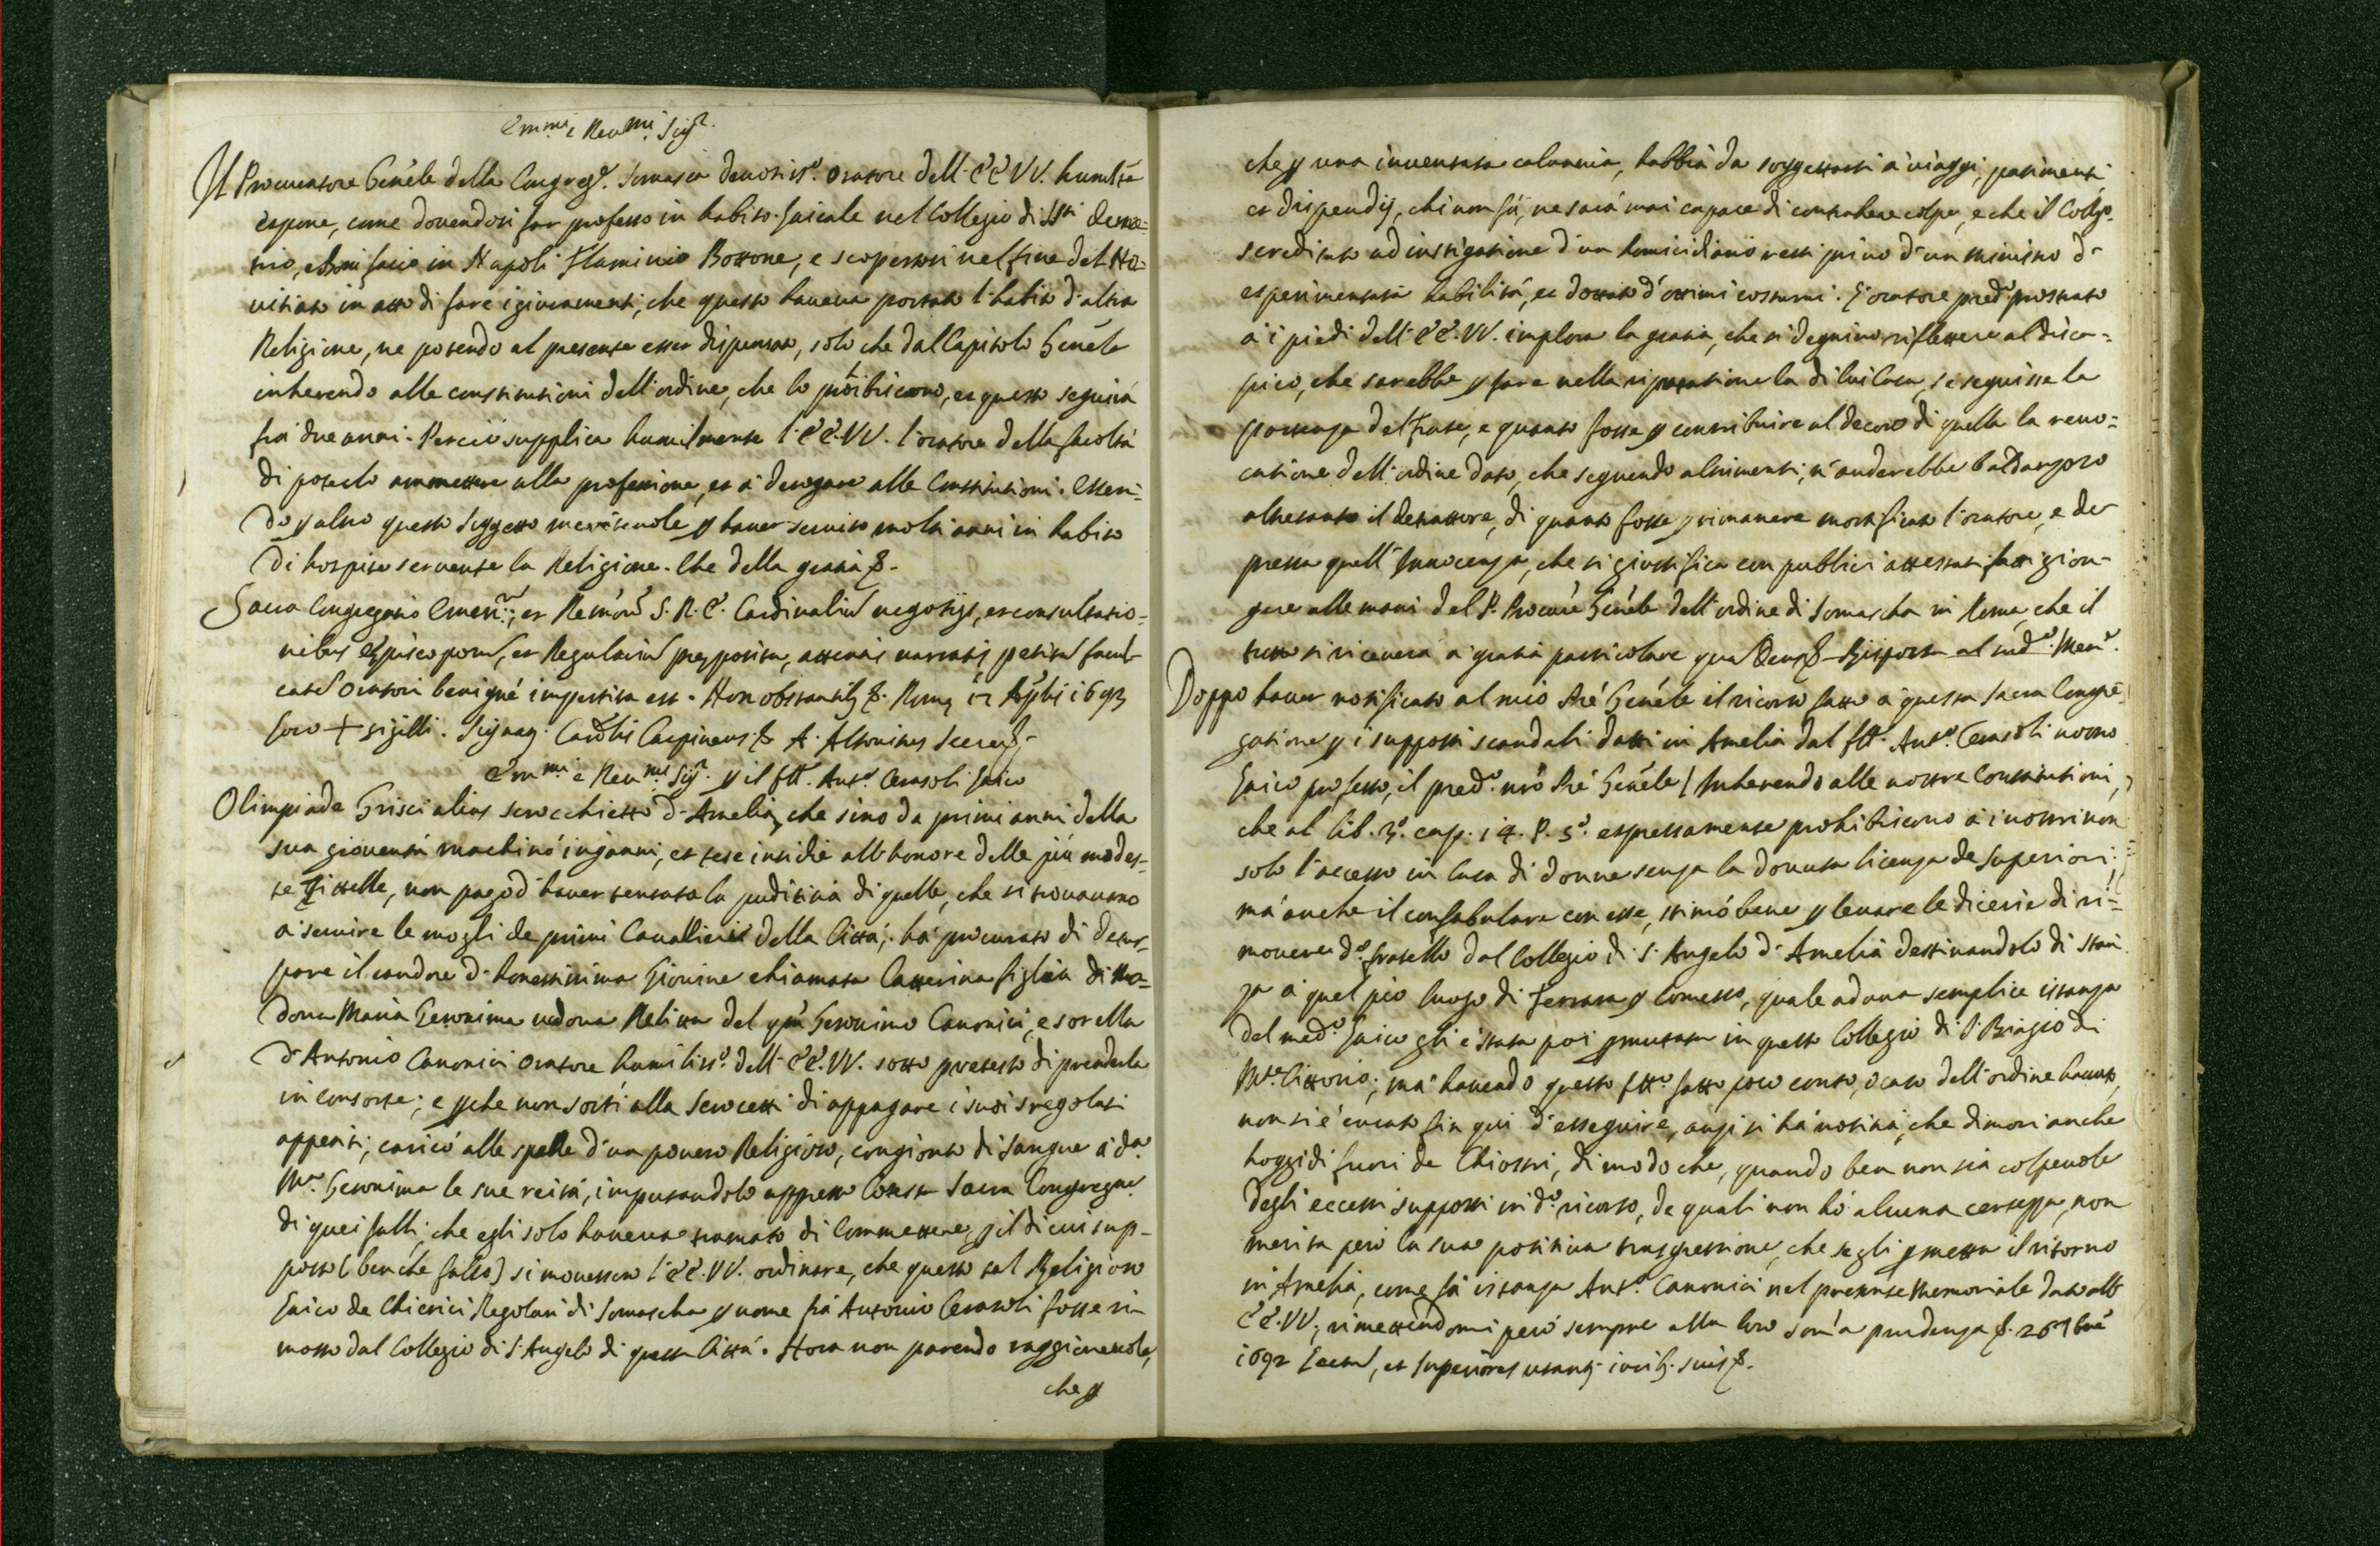 Emmi e Reumi Sigri
Il Procuratore Genele della Congregne Somasca deuotisso. oratore dell' EE VV. humilte
espone, come douendosi far professo in habito laicale nel Collegio di SSti Deme-
trio, e Bonifacio in Napoli Flaminio Bottone, e scopertosi nel fine del No-
uitiato in atto di fare i giuramenti, che questo haueua portato l'habito d'altra
Religione, ne potendo al presente esser dispensato, solo che dal Capitolo Genele
inherendo alle constitutioni dell'ordine, che lo prohibiscono, et questo seguirà
frà due anni. Perciò supplica humilmente l'EE.VV. l'oratore della facoltà
di poterlo ammettere alla professione, et à derogare alle Constitutioni. Essen-
do p altro questo soggetto meriteuole p hauer seruito molti anni in habito
di hospite seruente la Religione. Che della gratia &.
Sacra Congregatio Emern., et Remorum S. R. E. Cardinalium negotijs, et consultatio-
nibus Episcoporum, et Regularium preposita, attentis narratis petitam facul-
tatem Oratori benigné impertita est. Non obstantib & Rome 12 1692
loco + sigilli. Carolis Carpineus & A. Altouites Secrets
Emmi e Reumi Sigri p il ftt. Anto. Cerasoli laico
Olimpiade Grisci alias scrocchietto d'Amelia, che sino da primi anni della
sua giouentù machinò inganni, et tese insidie all'honore delle più modes-
te Zitelle, non pago d'hauer tentata la pudicitia di quelle, che si trouauano
à seruire le mogli de primi Cauallieri della Città, hà procurato di detur-
pare il candore d'honestissima Giouine chiamata Catterina figlia di Ma-
donna Maria Geronima uedoua Relitta del qm Geronimo Canonici, e sorella
d'Antonio Canonici Oratore humilisso. dell'EE.VV. sotto pretesto di prenderla
in consorte; e pche non sortì alla di appagare i suoi sregolati
appetiti, caricò alle spalle d'un pouero Religioso, congionto di sangue à da
Ma. Geronima le sue reità, imputandolo appresso cotesta Sacra Congregne
di quei falli, che egli solo haueua tramato di commettere, p il di cui sup-
posto (benche falso) si mouessero l'EE.VV. ordinare, che questo tal Religioso
laico de Chierici Regolari di Somascha p nome frà Antonio Cerasoli fosse ri-
mosso dal Collegio di S. Angelo di questa Città. Hora non parendo raggioneuole,
che p
che p una inuentata calunnia, habbia da soggettarsi à uiaggi, patimenti
et dispendij, chi non fù, ne sarà mai capace di contrahere colpa, e che il Collego.
scredittato ad instigatione d'un homicidiario resti priuo d'un ministro d'
esperimentata habilità, et dottato d'ottimi costumi. L'oratore predo prostrato
à i piedi dell'EE.VV. implora la gratia, che si degnino riflettere al disca-
pico, che sarebbe p fare nella riputatione la di lui Casa, se seguisse la
partenza del frate, e quanto fosse p contribuire al decoro di quella la reuo-
catione dell'ordine dato, che seguendo altrimenti, n'anderebbe baldanzoso
altretanto il detrattore, di quanto fosse p rimanere mortificato l'oratore, e de-
pressa quell'Innocenza, che si giustifica con publici attestati fatti gion-
gere alle mani del P. Procure Genele dell'ordine di Somascha in Roma, che il
tutto si riceuerà à gratia particolare quam Deus & Risposta al sudo. Meme.
Doppo hauer notificato al mio Pre Genele il ricorso fatto à questa Sacra Congre-
gatione p i supposti scandali datti in Amelia dal ftt. Anto. Cerasoli nostro
laico professo, il predo. nro Pre Genele / Inherendo alle nostre Constitutioni,
che al lib. 3o. cap. 14. P. 5o. espressamente prohibiscono à i nostri non
solo l'accesso in Casa di donne senza la douuta licenza de Superiori;
mà anche il confabulare con esse, stimò bene p leuare le dicerie di ri-
mouere do. fratello dal Collegio di S. Angelo d'Amelia destinandolo di stan-
za à quel pio luogo di Ferrara p Comesso, quale ad una semplice istanza
del medo. laico gli è stata poi pmutata in questo Collegio di S. Biagio di
Mte. Cittorio; mà hauendo questo ftto. fatto poco conto, ò caso dell'ordine hauuto,
non si è curato fin qui d'esseguire, anzi si hà notitia, che dimori anche
hoggidi fuori de Chiostri, di modo che, quando ben non sia colpeuole
degli eccessi supposti in do. ricorso, de quali non hò alcuna certezza, non
merita però la sua positiua trasgressione, che se gli pmetta il ritorno
in Amelia, come fà istanza Anto. Canonici nel presente Memoriale dato all'
EE.VV., rimettendomi però sempre alla loro soma prudenza &. 26 7bre
1692 Lectum, et Superiores utantr. iurib. suis &.